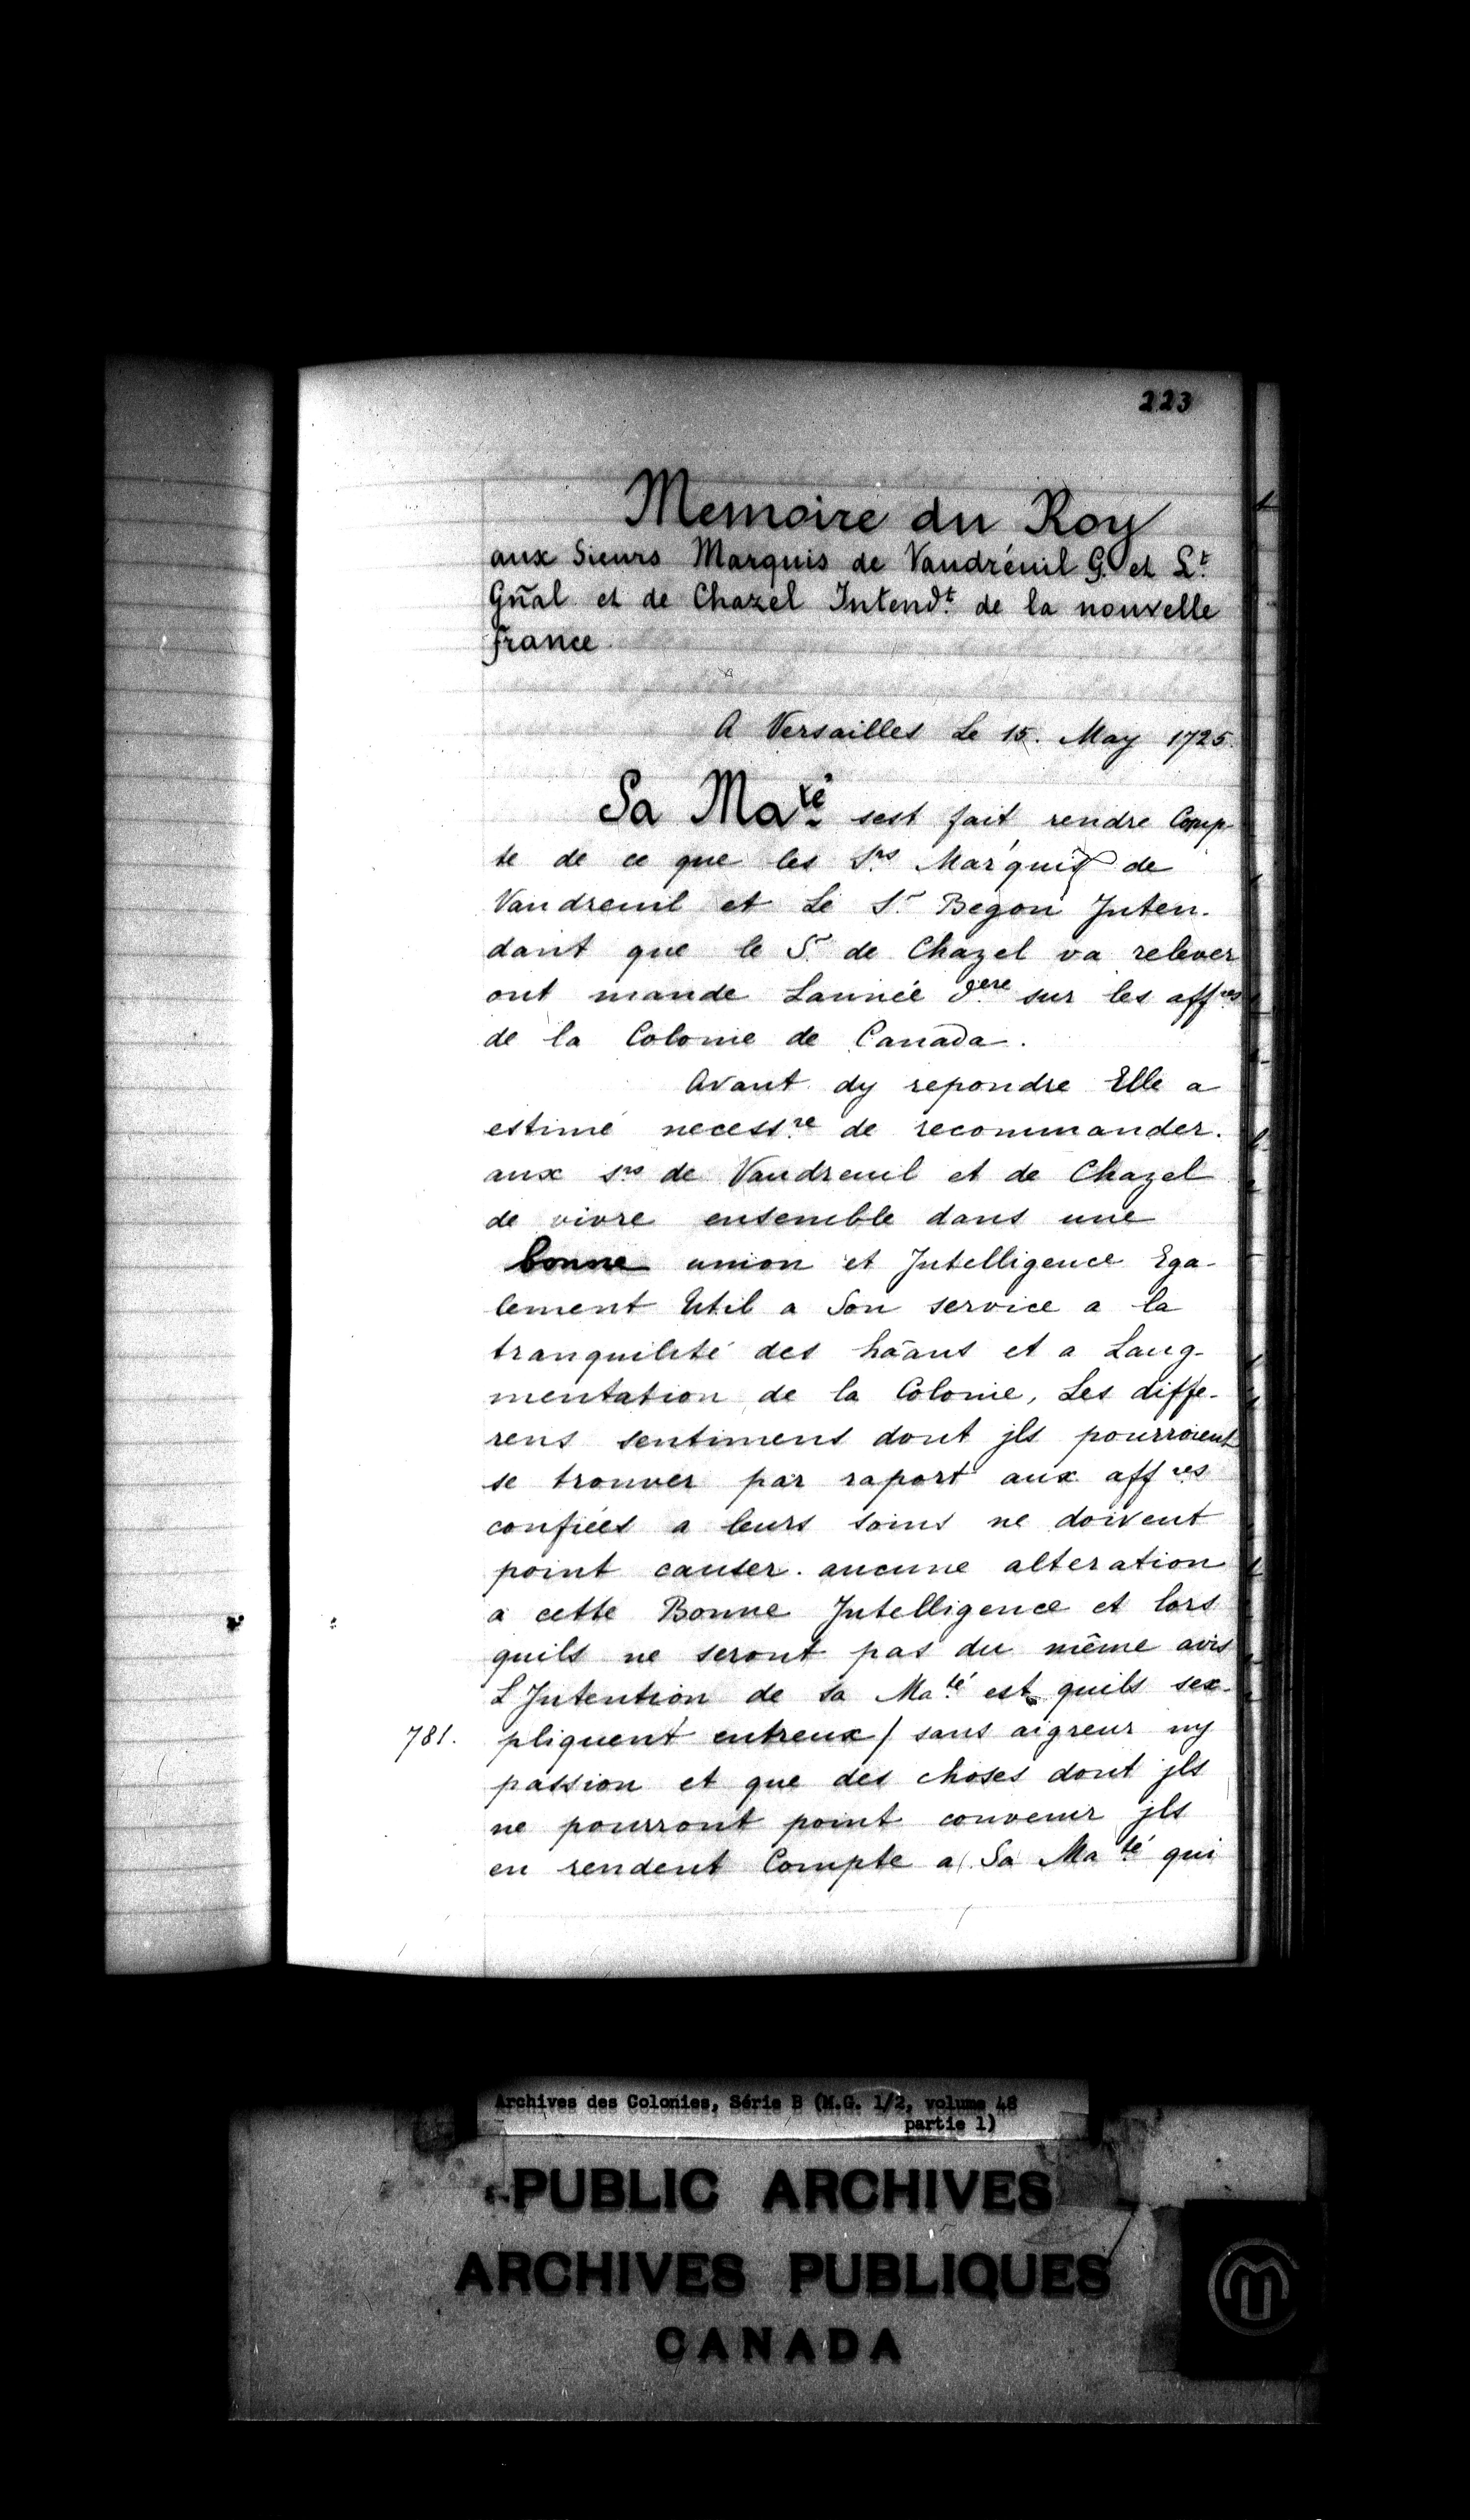 223
Memoire du Roy
aux Sieurs Marquis de Vaudréuil G. et Lt.
Gñal et de Chazel Intendt. de la nouvelle
france.
A Versailles Le 15. May 1725.
Sa Maté sest fait rendre Comp
te de ce que les Srs Marquis de
Vaudreuil et Le Sr Begon Inten-
dant que le Sr de Chazel va relever
ont mande Lannée dere sur les affres
de la Colonie de Canada.
Avant dy repondre Elle a
estimé necessre de recommander.
aux srs de Vaudreuil et de Chazel
de vivre ensemble dans une
bonne union et Intelligence Ega-
lement Util a Son service a la
tranquilité des hãans et a Laug-
mentation de la Colonie, Les diffe-
rens sentimens dont jls pourroient
se trouver par raport aux affres
confiées a leurs soins ne doivent
point causer. aucune alteration
a cette Bonne Intelligence et lors
quils ne seront pas du même avis
L Intention de sa Maté est quils sex-
781. pliquent entreux / sans aigreur ny
passion et que des choses dont jls
ne pourront point convenir jls
en rendent Compte a Sa Maté qui
Archives des Colonies, Série B (M.G. 1/2, volume 48
partie 1)
PUBLIC ARCHIVES
ARCHIVES PUBLIQUES
CANADA